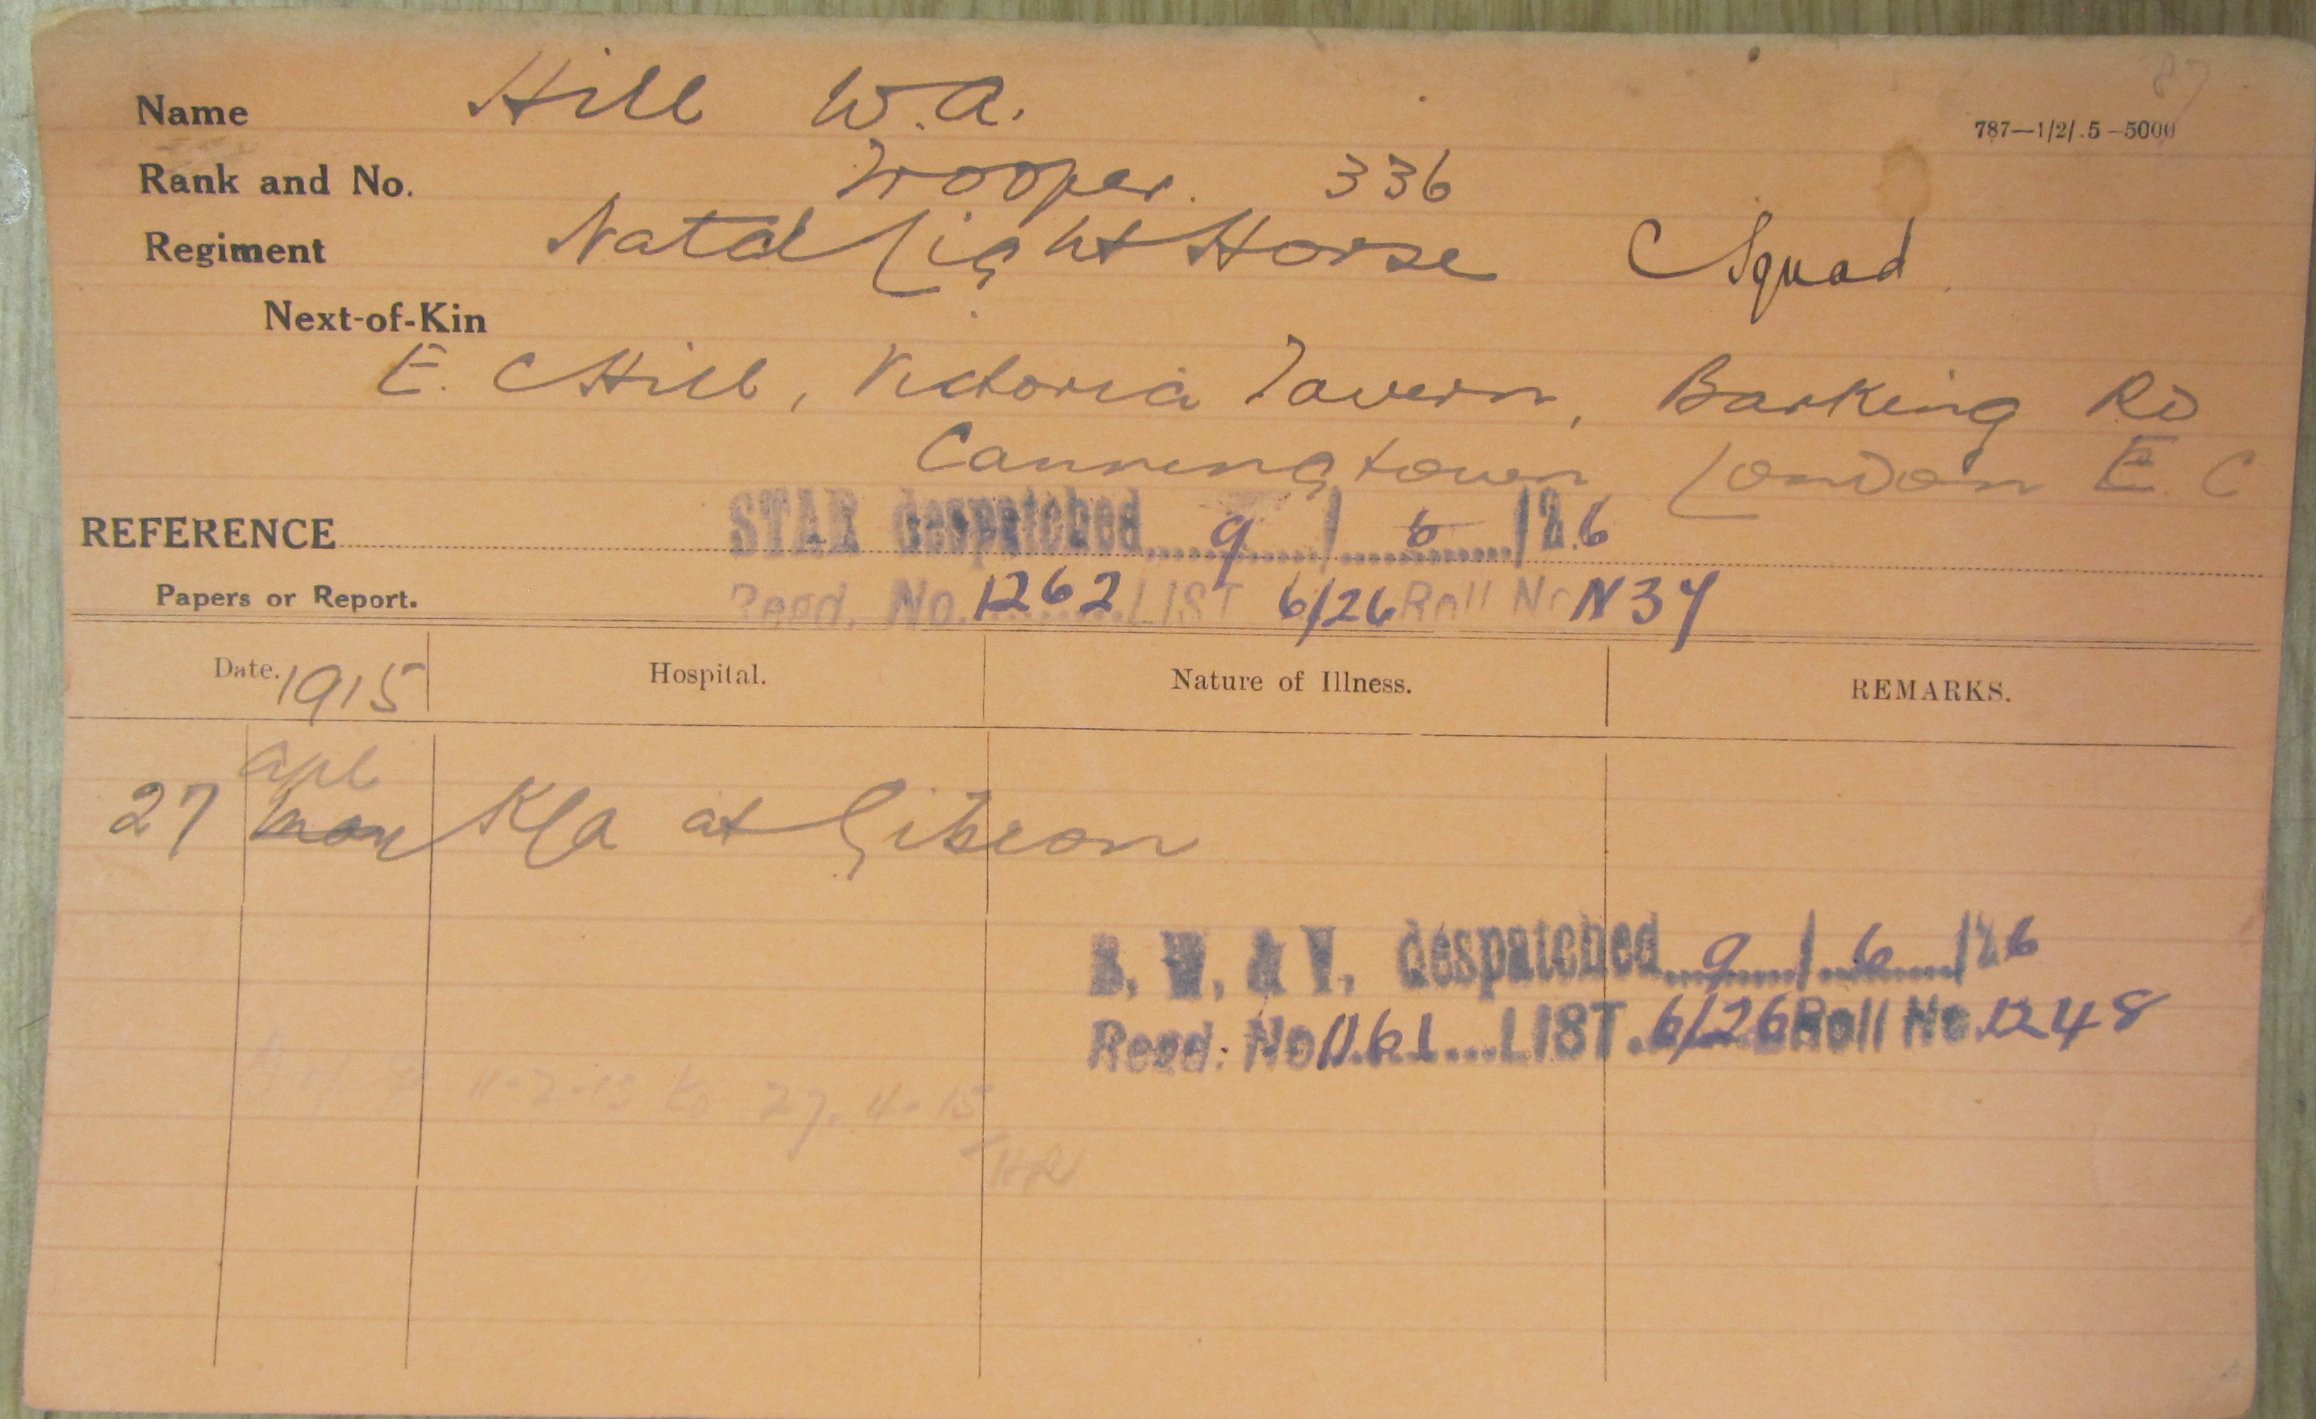 Name Hill W.A.
787—1/2/.5—5000
Rank and No. Trooper. 336
Regiment Natal Light Horse C Squad.
Next-of-Kin
E. C Hill, Victoria Tavern, Barking RD
Canningtown London E.C
REFERENCE STAR despatched 9/6/26
Papers or Report. Regd. No. 1262 LIST 6/26 Roll No N34
Date. 1915 Hospital. Nature of Illness. REMARKS.
apl
27 may KIA at Gibeon
B. W. & V. despatched 9/6/26
Regd. No 1161 LIST 6/26 Roll No 1248
11-2-15 to 27.4.15